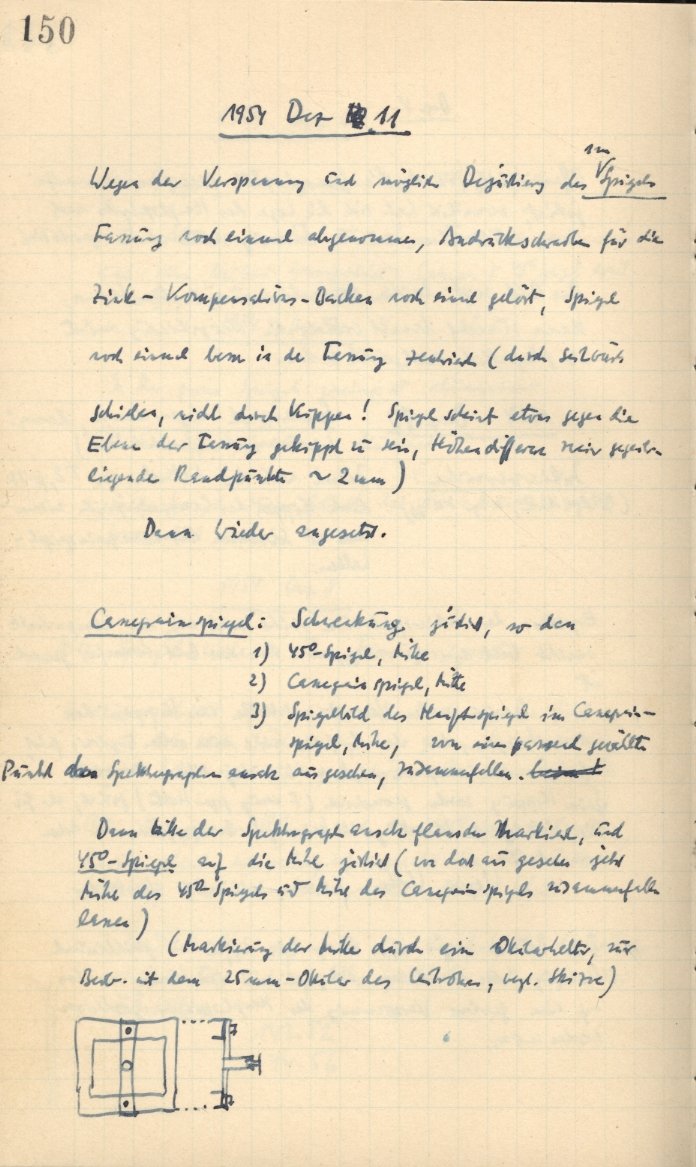 150
1954 Dez 11
Wegen der Verspannung und möglichen Dejustierung des 1m Spiegels
Fassung noch einmal abgenommen, Andrückschrauben für die
Zink-Kompensations-Backen noch einmal gelöst, Spiegel
noch einmal besser in der Fassung zentriert (durch seitwärts
schieben, nicht durch Kippen! Spiegel scheint etwas gegen die
Ebene der Fassung gekippt zu sein, Höhendifferenz zweier gegenüber-
liegender Randpunkte ~ 2 mm)
Dann wieder angesetzt.
Cassegrainspiegel: Schwenkung justiert, so dass
1) 45°-Spiegel, Mitte
2) Cassegrainspiegel, Mitte
3) Spiegelbild des Hauptspiegels im Cassegrain-
spiegel, Mitte, von einem passend gewählten
Punkt des Spektrographenansatz aus gesehen, zusammenfallen.
Dann Mitte der Spektrographenansatzflansches markiert, und
45°-Spiegel auf die Mitte justiert (von dort aus gesehen jetzt
Mitte des 45°-Spiegels und Mitte des Cassegrainspiegels zusammenfallen
lassen)
(Markierung der Mitte durch ein Okularhalter, zur
Beob. mit dem 25mm-Okular des Leitrohres, vergl. Skizze)